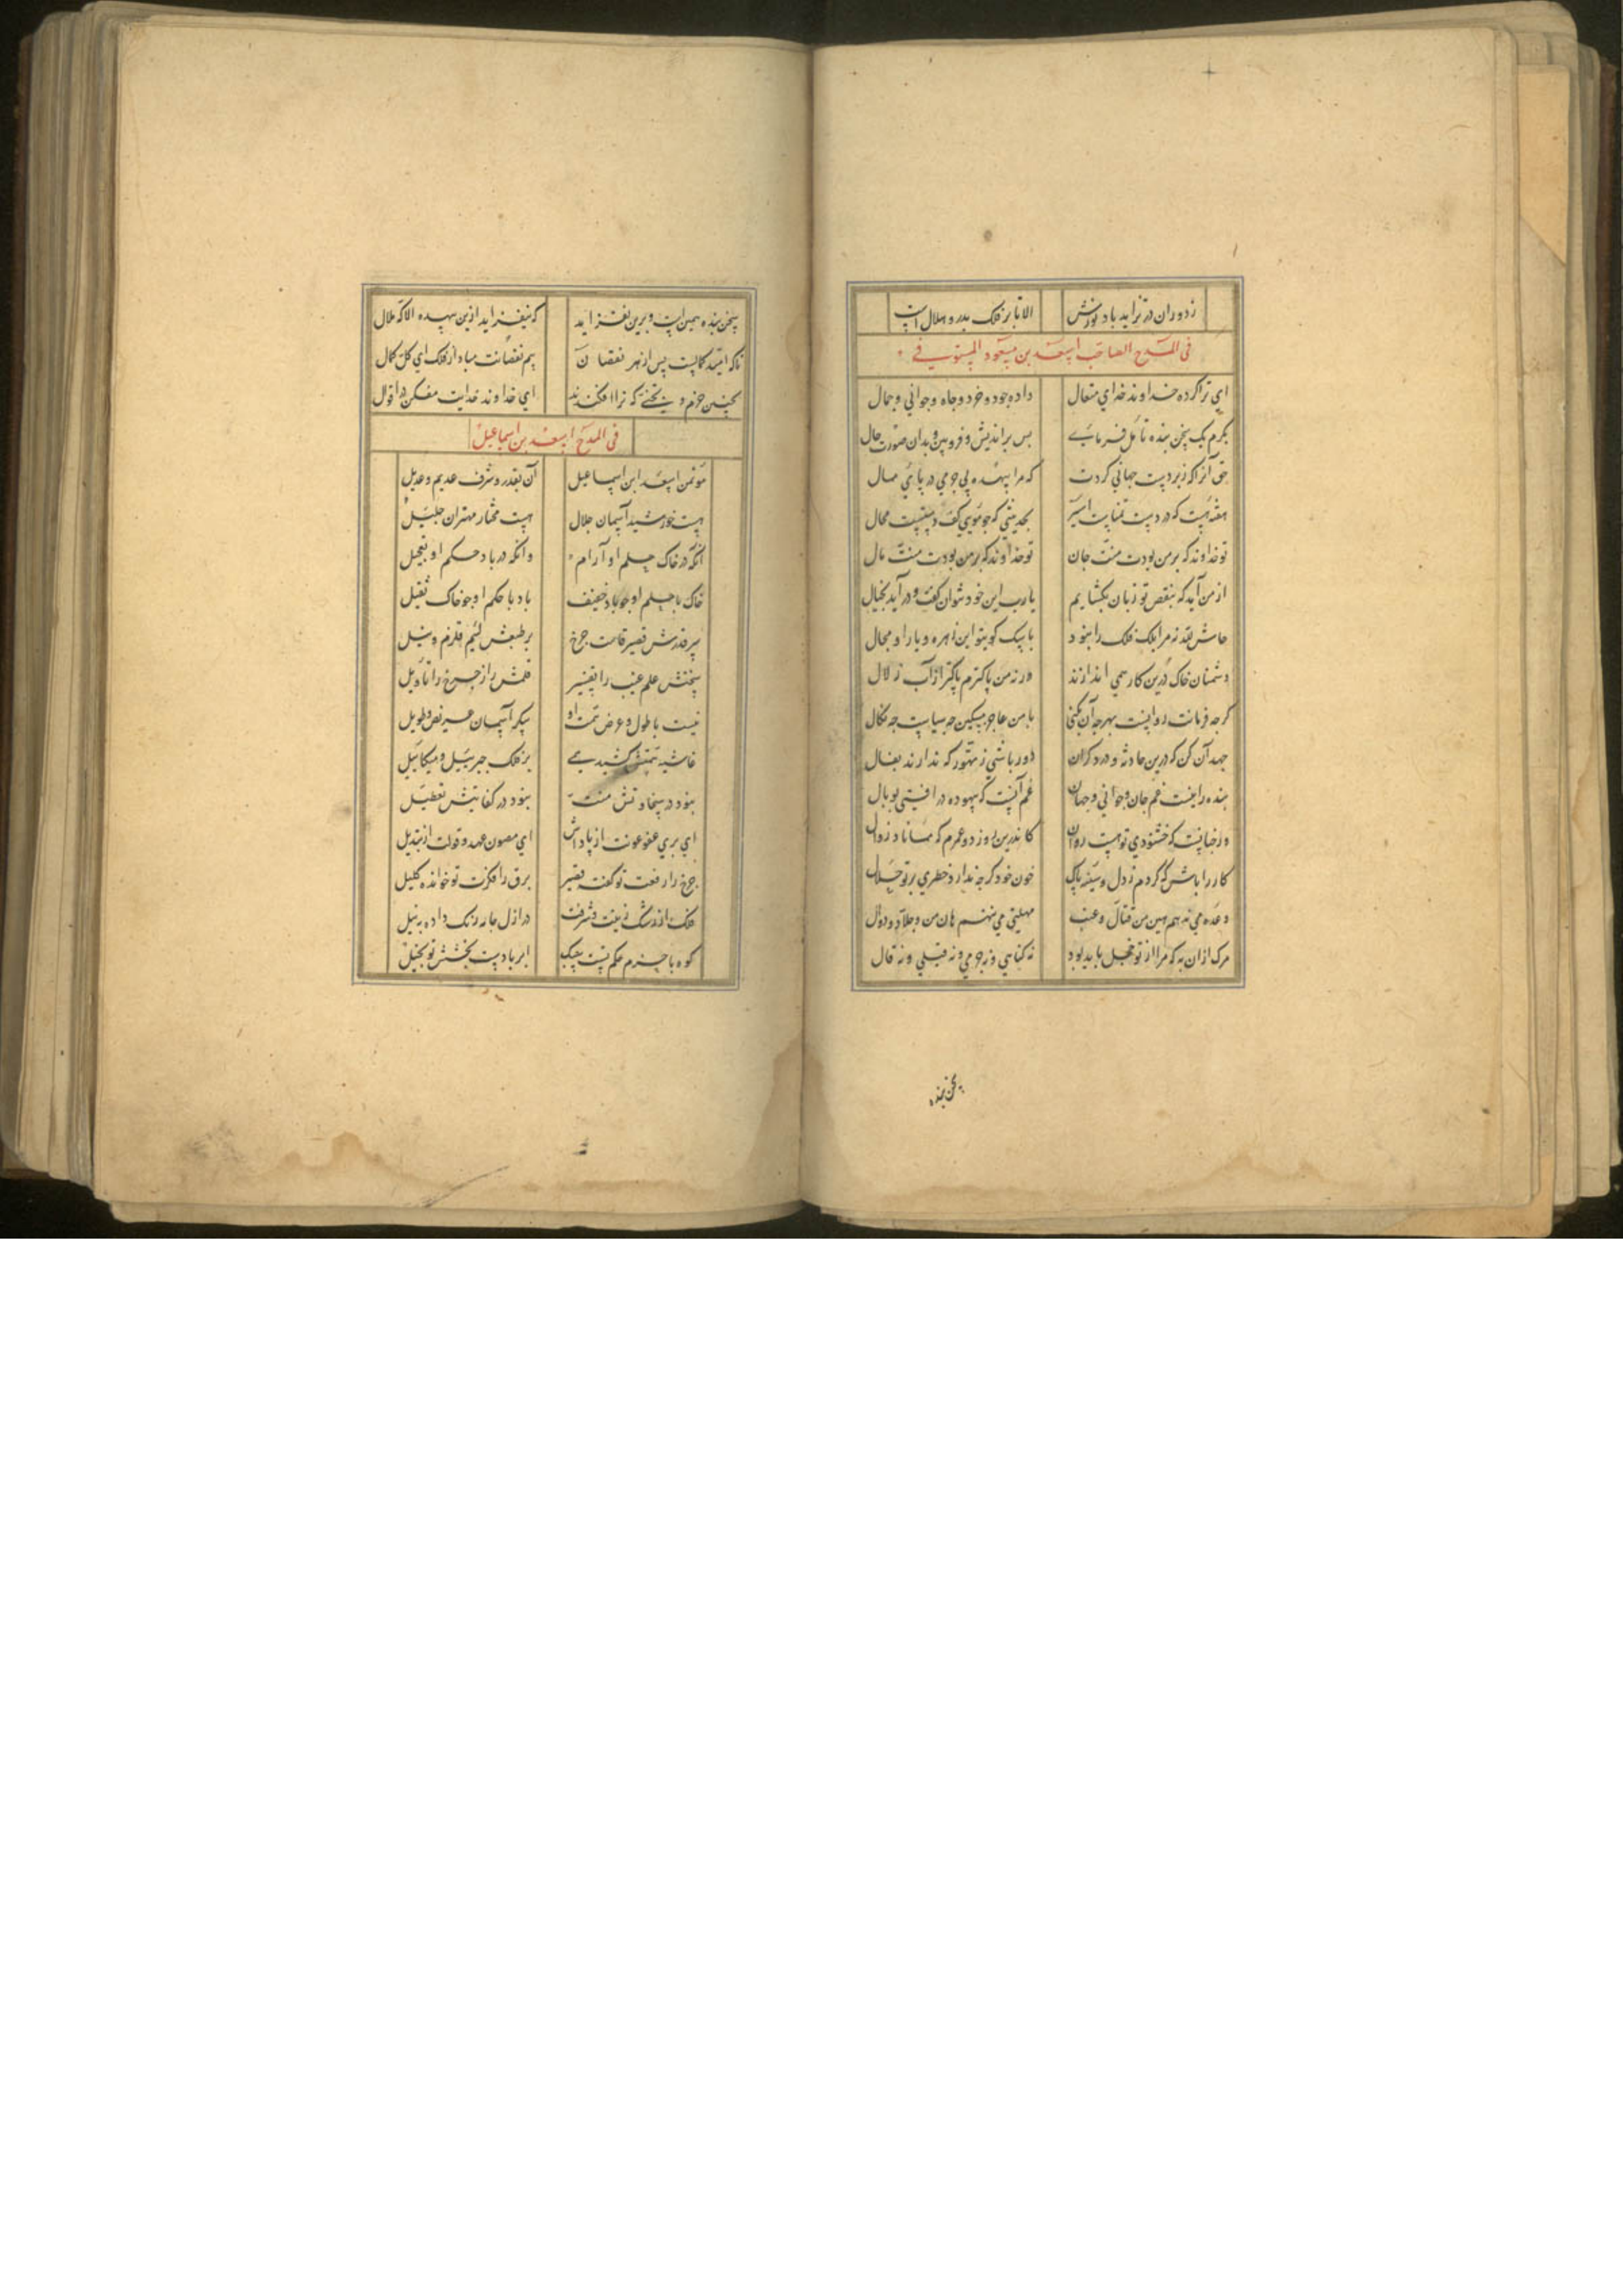 ز دوران در تزاید باد نورش الا تا بر فلک بدر و هلال است
فی المدح الصاحب اسعد بن مسعود المستوفی
ای ترا کرده خداوند خدای متعال داده جود و خرد و جاه و جوانی و جمال
بکرم یک سخن بنده تأمل فرمای بس براندیش و فرو بین و بدان صورت حال
حق آنرا که زبردست جهانی کردت که مرا بیهده بی جرمی در پای ممال
هفته هست که در دست تمنایت اسیر بحدیثی که جو موی کف دستیست محال
تو خداوند که بر من بودت منت جان تو خداوند که بر من بودت منت مال
از من آید که بنقص تو زبان بکشایم یارب این خود بتوان گفت و درآید بخیال
حاش لله نه مرا بلک فلک را نبود با سک کوی تو این زهره و یارا و مجال
دشمنان خاک درین کار همی اندازند ورنه من پاکترم پاکتر از آب زلال
کرجه فرمانت روانست بهرجه آن بکنی با من عاجز مسکین جه سیاست جه نکال
جهد آن کن که درین حادثه و درد کران دور باشی ز تهور که ندارند بفال
بنده را نیست غم جان و جوانی و جهان غم آنست که بیهوده در افتی بوبال
ور خیانیست که خشنودی تو هست روان کاندرین روز دو عمرم که مماناد زوال
کار را باش که کردم ز دل و سینه پاک خون خود کرجه ندارد خطری بر تو حلال
وعده می نه هم هین من قتال و عنب مهلتی می نهم هان من و جلاد و دوال
مرک از آن به که مرا از تو خجل باید بود نه کناهی و نه جرمی و نه قیلی و نه قال
سخن بنده
سخن بنده همین است و برین نفزاید که نیفزاید ازین بیهده الا که ملال
تا که امید کمالست پس از هر نقصان بیم نقصانت مباد از فلک ای کل کمال
بجنین جرم و سختی که ترا افکندند ای خداوند خدایت مفکن در اقوال
فی المدح اسعد بن اسماعیل
موتمن اسعد ابن اسماعیل آن بقدر و شرف عدیم و عدیل
هست خورشید آسمان جلال هست مختار مهتران جلیل
آنکه در خاک حلم او آرام وانکه در باد حکم او تعجیل
خاک با حلم او جو باد خفیف باد با حکم او جو خاک ثقیل
بر قدرش قصیر قامت جرخ بر طبعش لئیم قلزم و نیل
سخنش علم غیب را تفسیر قلمش راز جرخ را تاویل
نیست با طول و عرض همت او پیکر آسمان عریض و طویل
غاشیه همتش کشید همی بر فلک جبرئیل و میکائیل
نبود در سخاوتش منت نبود در کفایتش تعطیل
ای بری عفو عونت از پاداش ای مصون عهد و قولت از تبدیل
جرخ را رفعت تو کفته قصیر برق را فکرت تو خوانده کلیل
فلک از رشک رفعت و شرفت در ازل جامه رنک داده به نیل
کوه با حزم محکم تست سبک ابر با دست بخشش تو بخیل